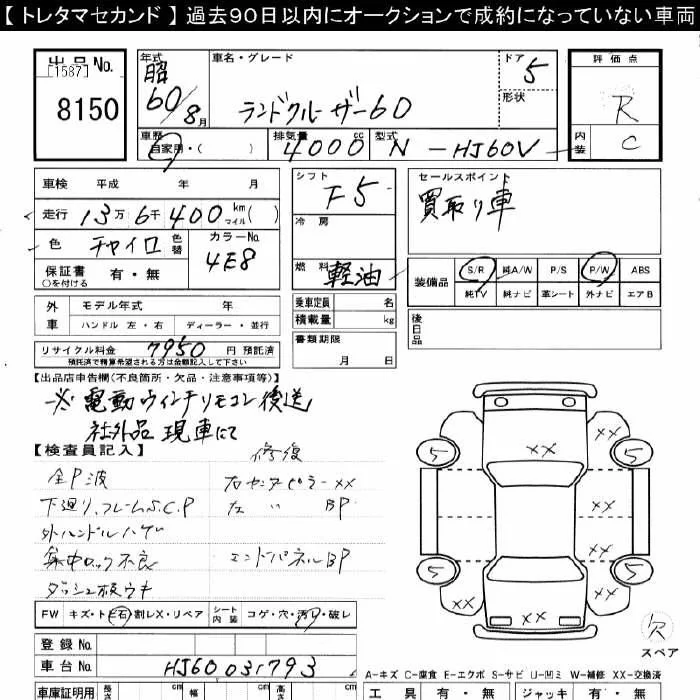 【 トレタマセカンド 】 過去９０日以内にオークションで成約になっていない車両
出品No.
[1587]
8150
年式
昭
60/8月
車名・グレード
ランドクルーザー60
ドア
5
形状
評価点
R
内装
C
車歴
自家用・( )
排気量
4000 cc
型式
N-HJ60V
車検 平成 年 月
走行 13万 6千 400 km マイル( )
色 チャイロ 色替
カラーNo.
4E8
保証書 有・無
○を付ける
シフト
F5
冷房
燃料
軽油
セールスポイント
買取り車
装備品
S/R 純A/W P/S P/W ABS
純TV 純ナビ 革シート 外ナビ エアB
外車
モデル年式 年
ハンドル 左・右 ディーラー・並行
乗車定員 名
積載量 kg
後日品
リサイクル料金 7950 円 預託済
預託済で精算希望される方は金額記入して下さい
書類期限
月 日
【出品店申告欄(不良箇所・欠品・注意事項等)】
※ 電動ウィンチリモコン後送
社外品 現車にて
【検査員記入】
修復
全P波
右センターピラーXX
下廻り、フレームS.C.P
左 〃 BP
外ハンドルハゲ
集中ロック不良
エンドパネルBP
ダッシュ板ウキ
FW キズ・トビ石・割レX・リペア シート内装 コゲ・穴・汚レ・破レ
XX
XX
5
5
XX
XX
5
5
XX
XX
XX
欠
スペア
登録No.
車台No. HJ60 031793
A-キズ C-腐食 E-エクボ S-サビ U-凹ミ W-補修 XX-交換済
車庫証明用
長さ cm
幅 cm
高さ cm
工具 有・無 ジャッキ 有・無